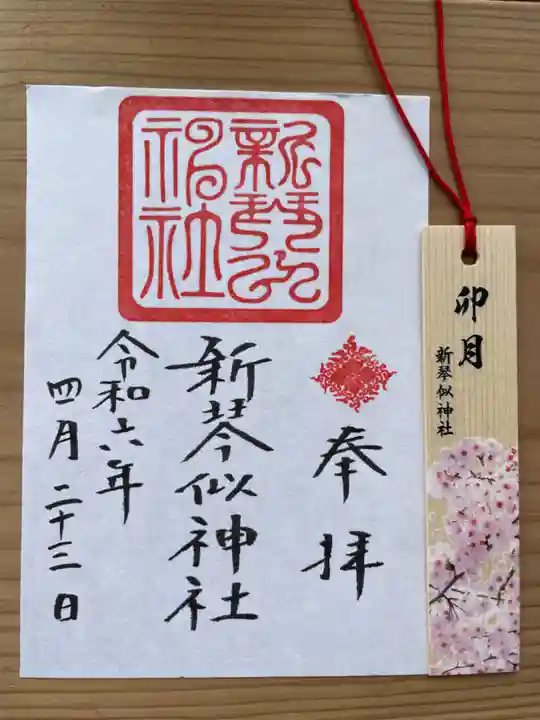 奉拝
新琴似神社
新琴似神社
令和六年
四月二十三日
卯月
新琴似神社